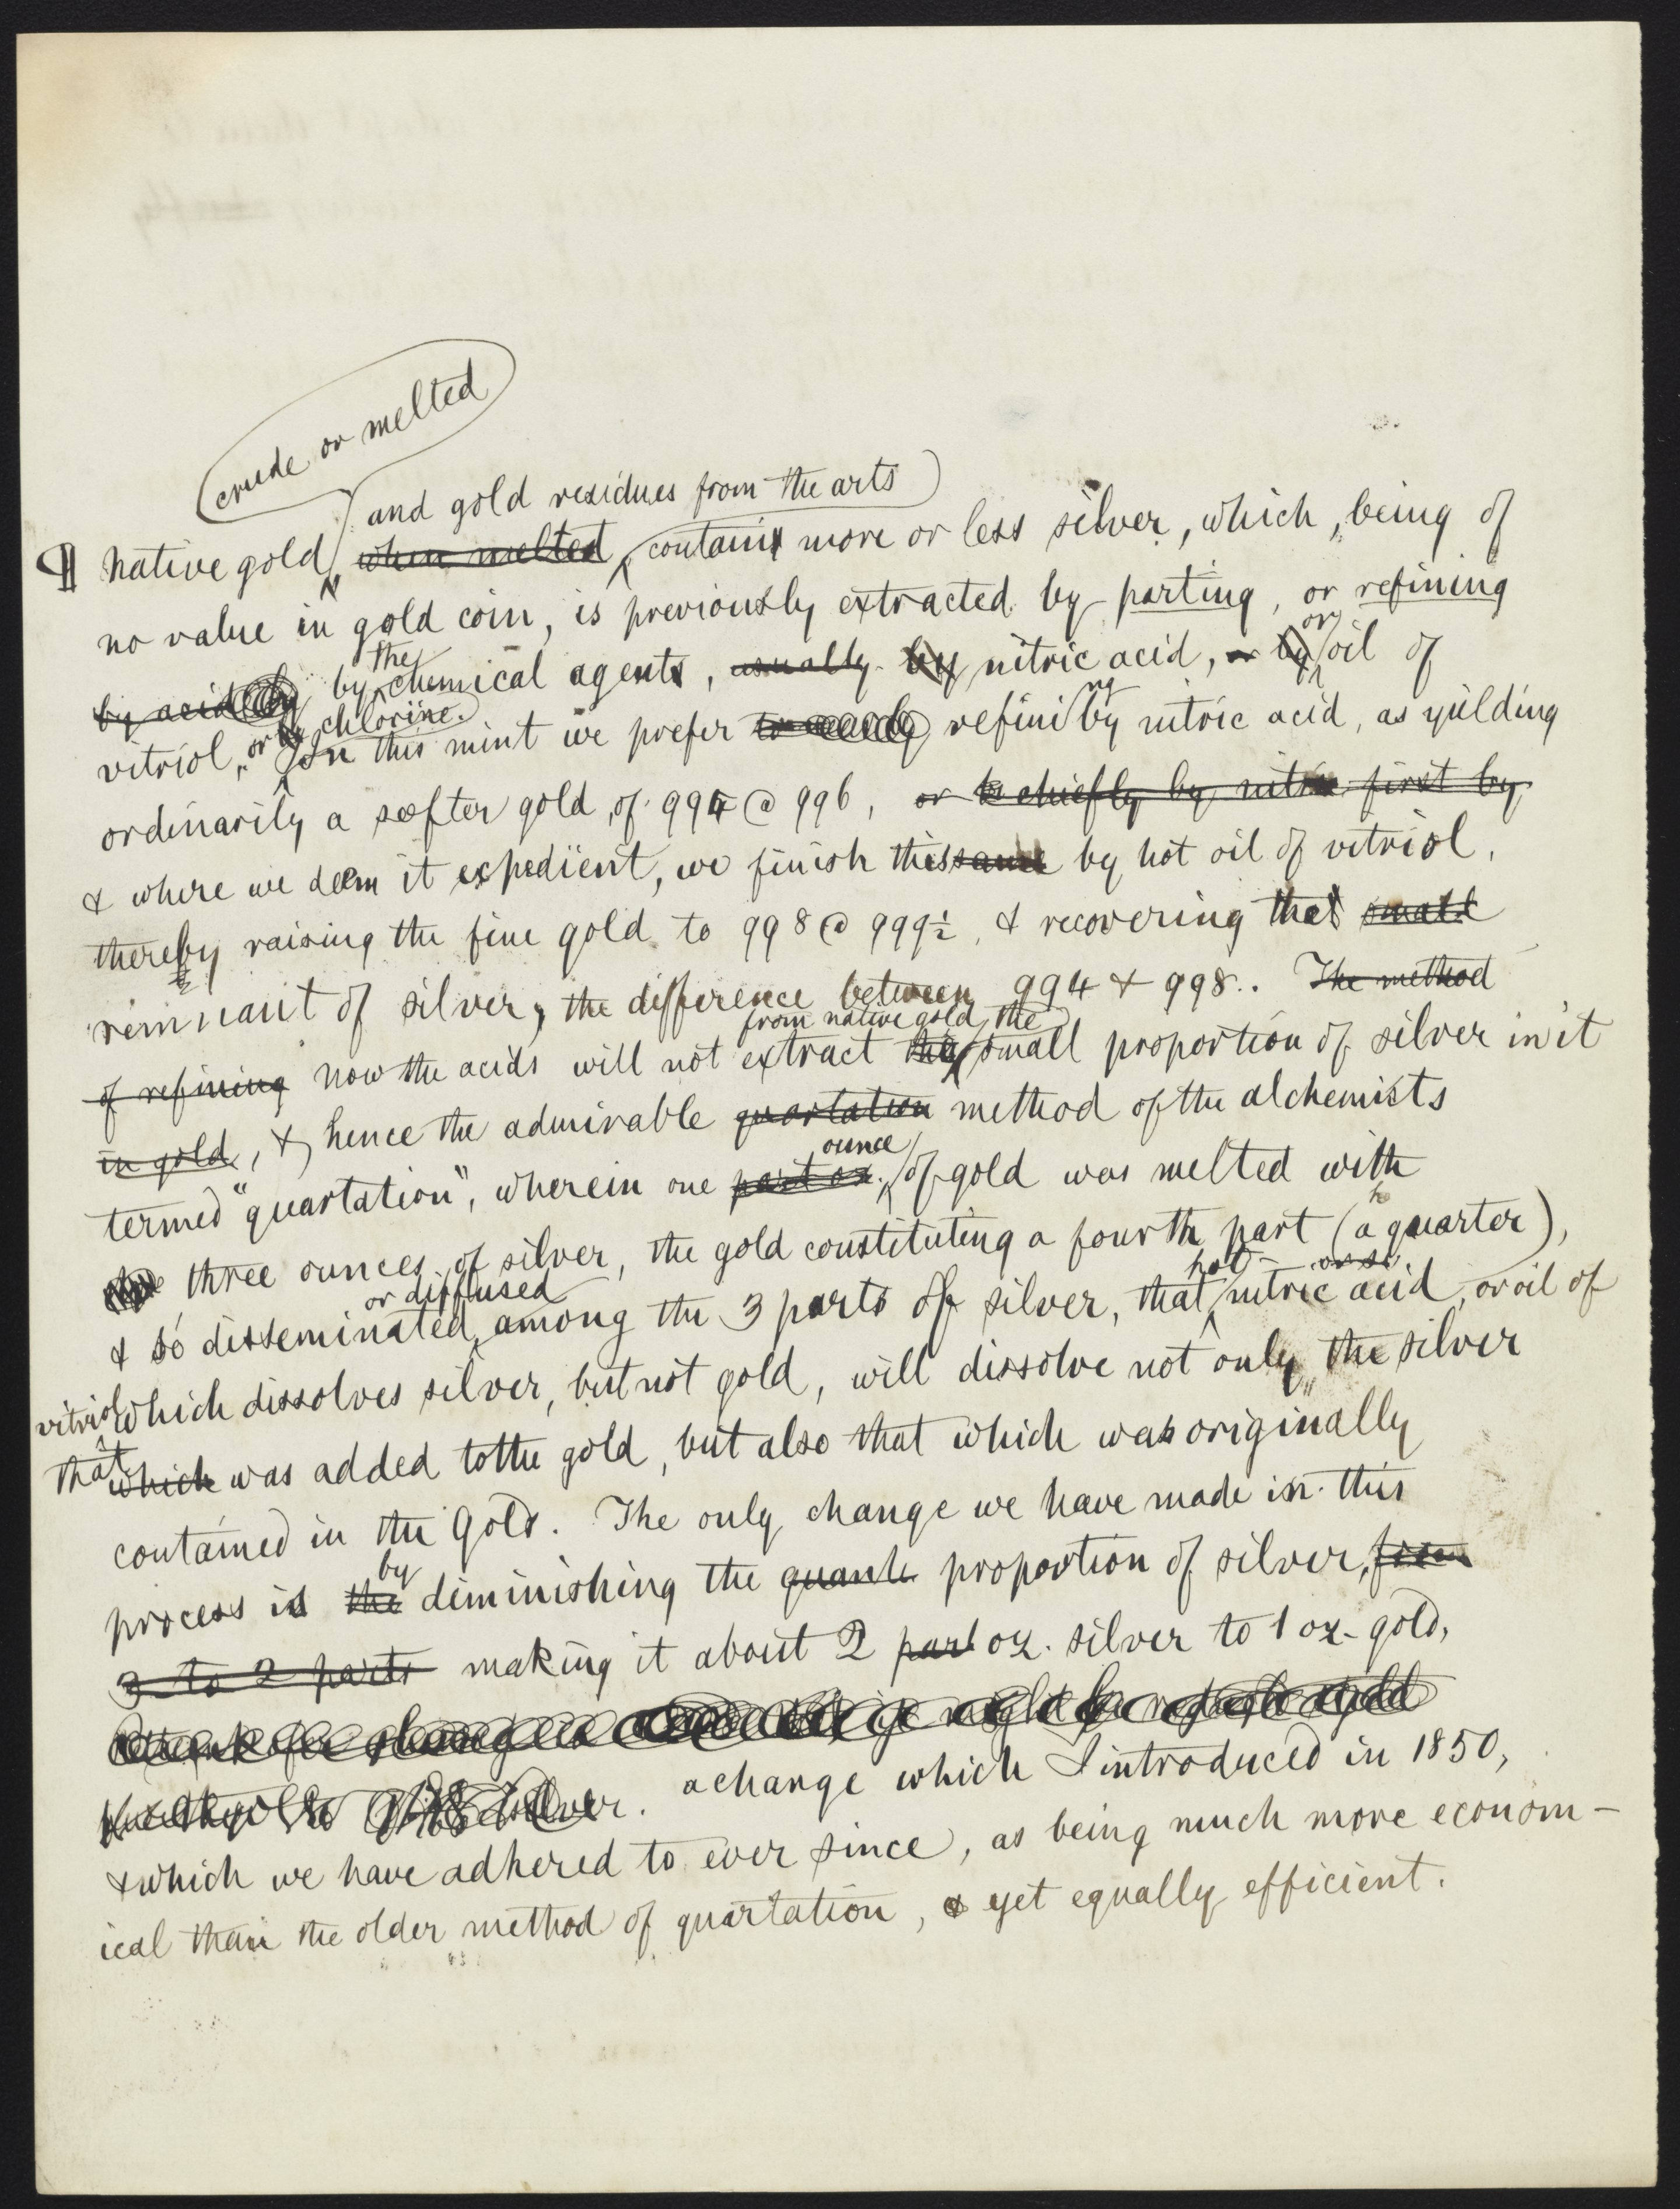 crude or melted
and gold residues from the arts
¶ Native gold when melted contains more or less silver, which, being of
no value in gold coin, is previously extracted by parting, or refining
the or
by acid by chemical agents, usually by nitric acid, or by oil of
or by chlorine. ng
vitriol, In this mint we prefer refini by nitric acid, as yielding
ordinarily a softer gold, of 994 @ 996, or chiefly by nitric first by
& where we deem it expedient, we finish this same by hot oil of vitriol,
thereby raising the fine gold to 998 @ 999½, & recovering that small
remnant of silver, the difference between 994 & 998.. The method
from native gold, the
of refining now the acids will not extract the small proportion of silver in it
in gold, & hence the admirable quartation method of the alchemists
ounce
termed "quartation", wherein one part oz. of gold was melted with
three ounces of silver, the gold constituting a fourth part (a quarter),
or diffused hot or so
& so disseminated among the 3 parts of silver, that nitric acid, or oil of
vitriol which dissolves silver, but not gold, will dissolve not only the silver
that
which was added to the gold, but also that which was originally
contained in the Gold. The only change we have made in this
by
process is the diminishing the quanti proportion of silver, from
3 to 2 parts making it about 2 part oz. silver to 1 oz. gold,
silver. a change which I introduced in 1850,
& which we have adhered to ever since, as being much more econom-
ical than the older method of quartation, & yet equally efficient.